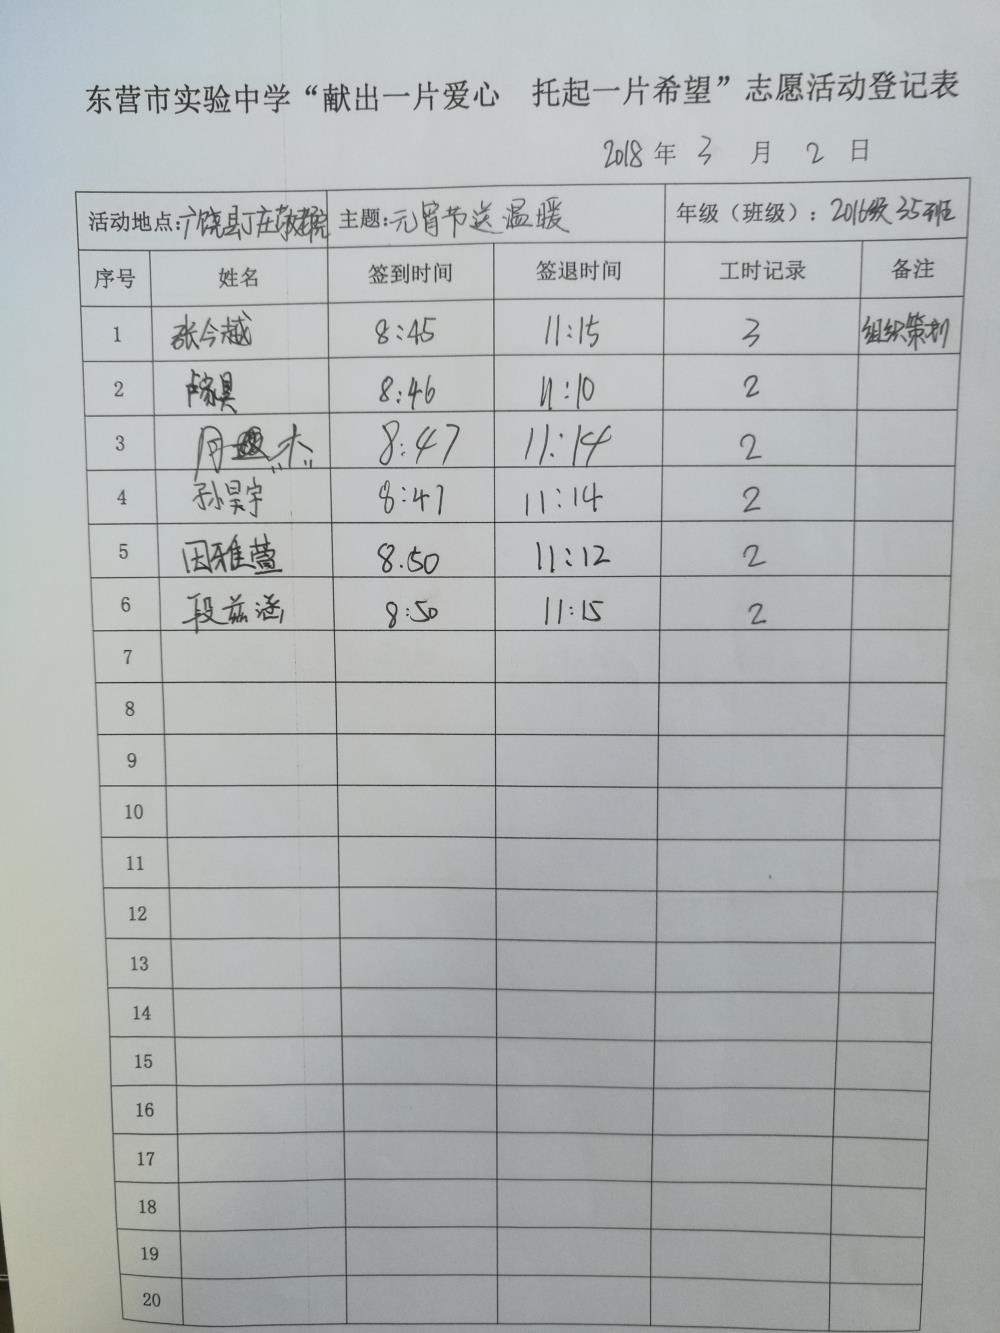 东营市实验中学“献出一片爱心 托起一片希望”志愿活动登记表
2018年 3 月 2 日
活动地点:广饶县丁庄敬老院 主题:元宵节送温暖 年级（班级）：2016级35班
序号 姓名 签到时间 签退时间 工时记录 备注
1 张今越 8:45 11:15 3 组织策划
2 8:46 11:10 2
3 8:47 11:14 2
4 孙昊宇 8:47 11:14 2
5 田雅萱 8.50 11:12 2
6 段兹涵 8:50 11:15 2
7
8
9
10
11
12
13
14
15
16
17
18
19
20